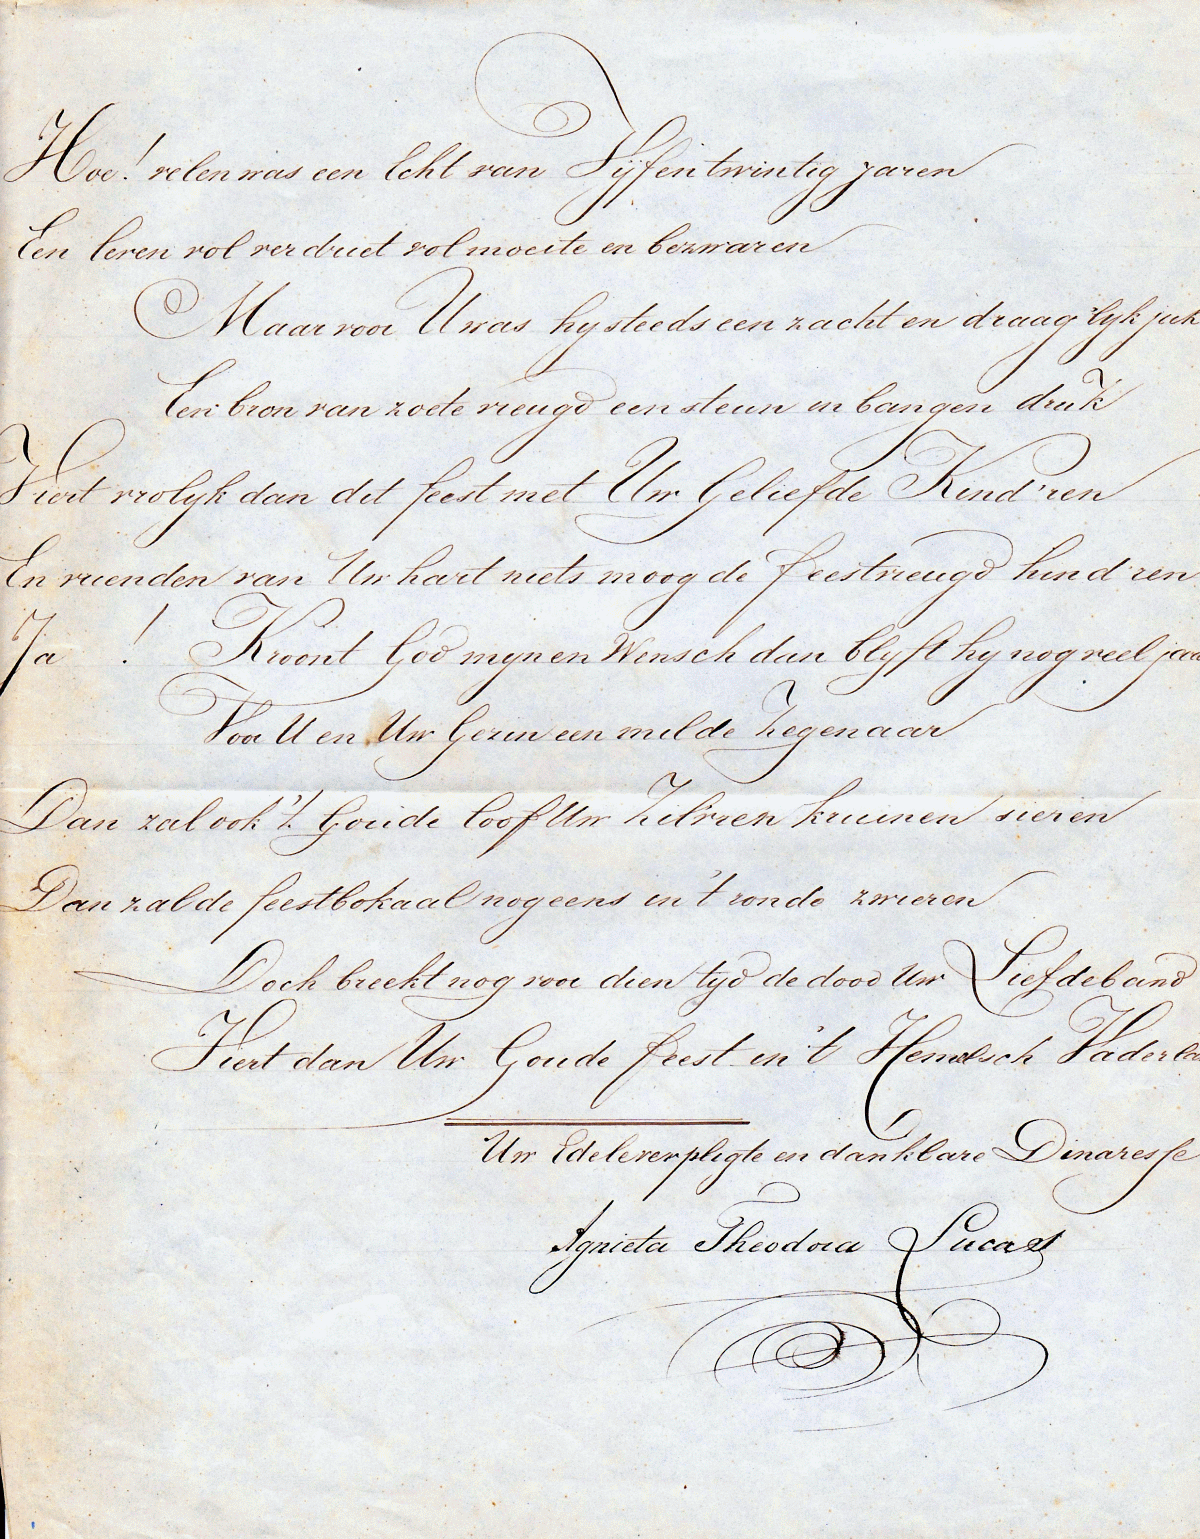 Hoe! velen was een Echt van Vijfentwintig jaren
Een leven vol verdriet vol moeite en bezwaren
Maar voor U was hy steeds een zacht en draaglyk juk
Een bron van zoete vreugd een steun in bangen druk
Viert vrolyk dan dit feest met Uw Geliefde Kind'ren
En vrienden van Uw hart niets moog de feestvreugd hind'ren
Ja ! Kroont God mynen Wensch dan blyft hy nog veel jaar
Voor U en Uw Gezin een milde Zegenaar
Dan zal ook 't Goude loof Uw Zilv'ren kruinen sieren
Dan zal de feestbokaal nog eens in 't ronde zwieren
Doch breekt nog voor dien tyd de dood Uw Liefdeband
Viert dan Uw Goude feest in 't Hemelsch Vaderla
Uw Edele verpligte en dankbare Dinaresse
Agnieta Theodora Lucas